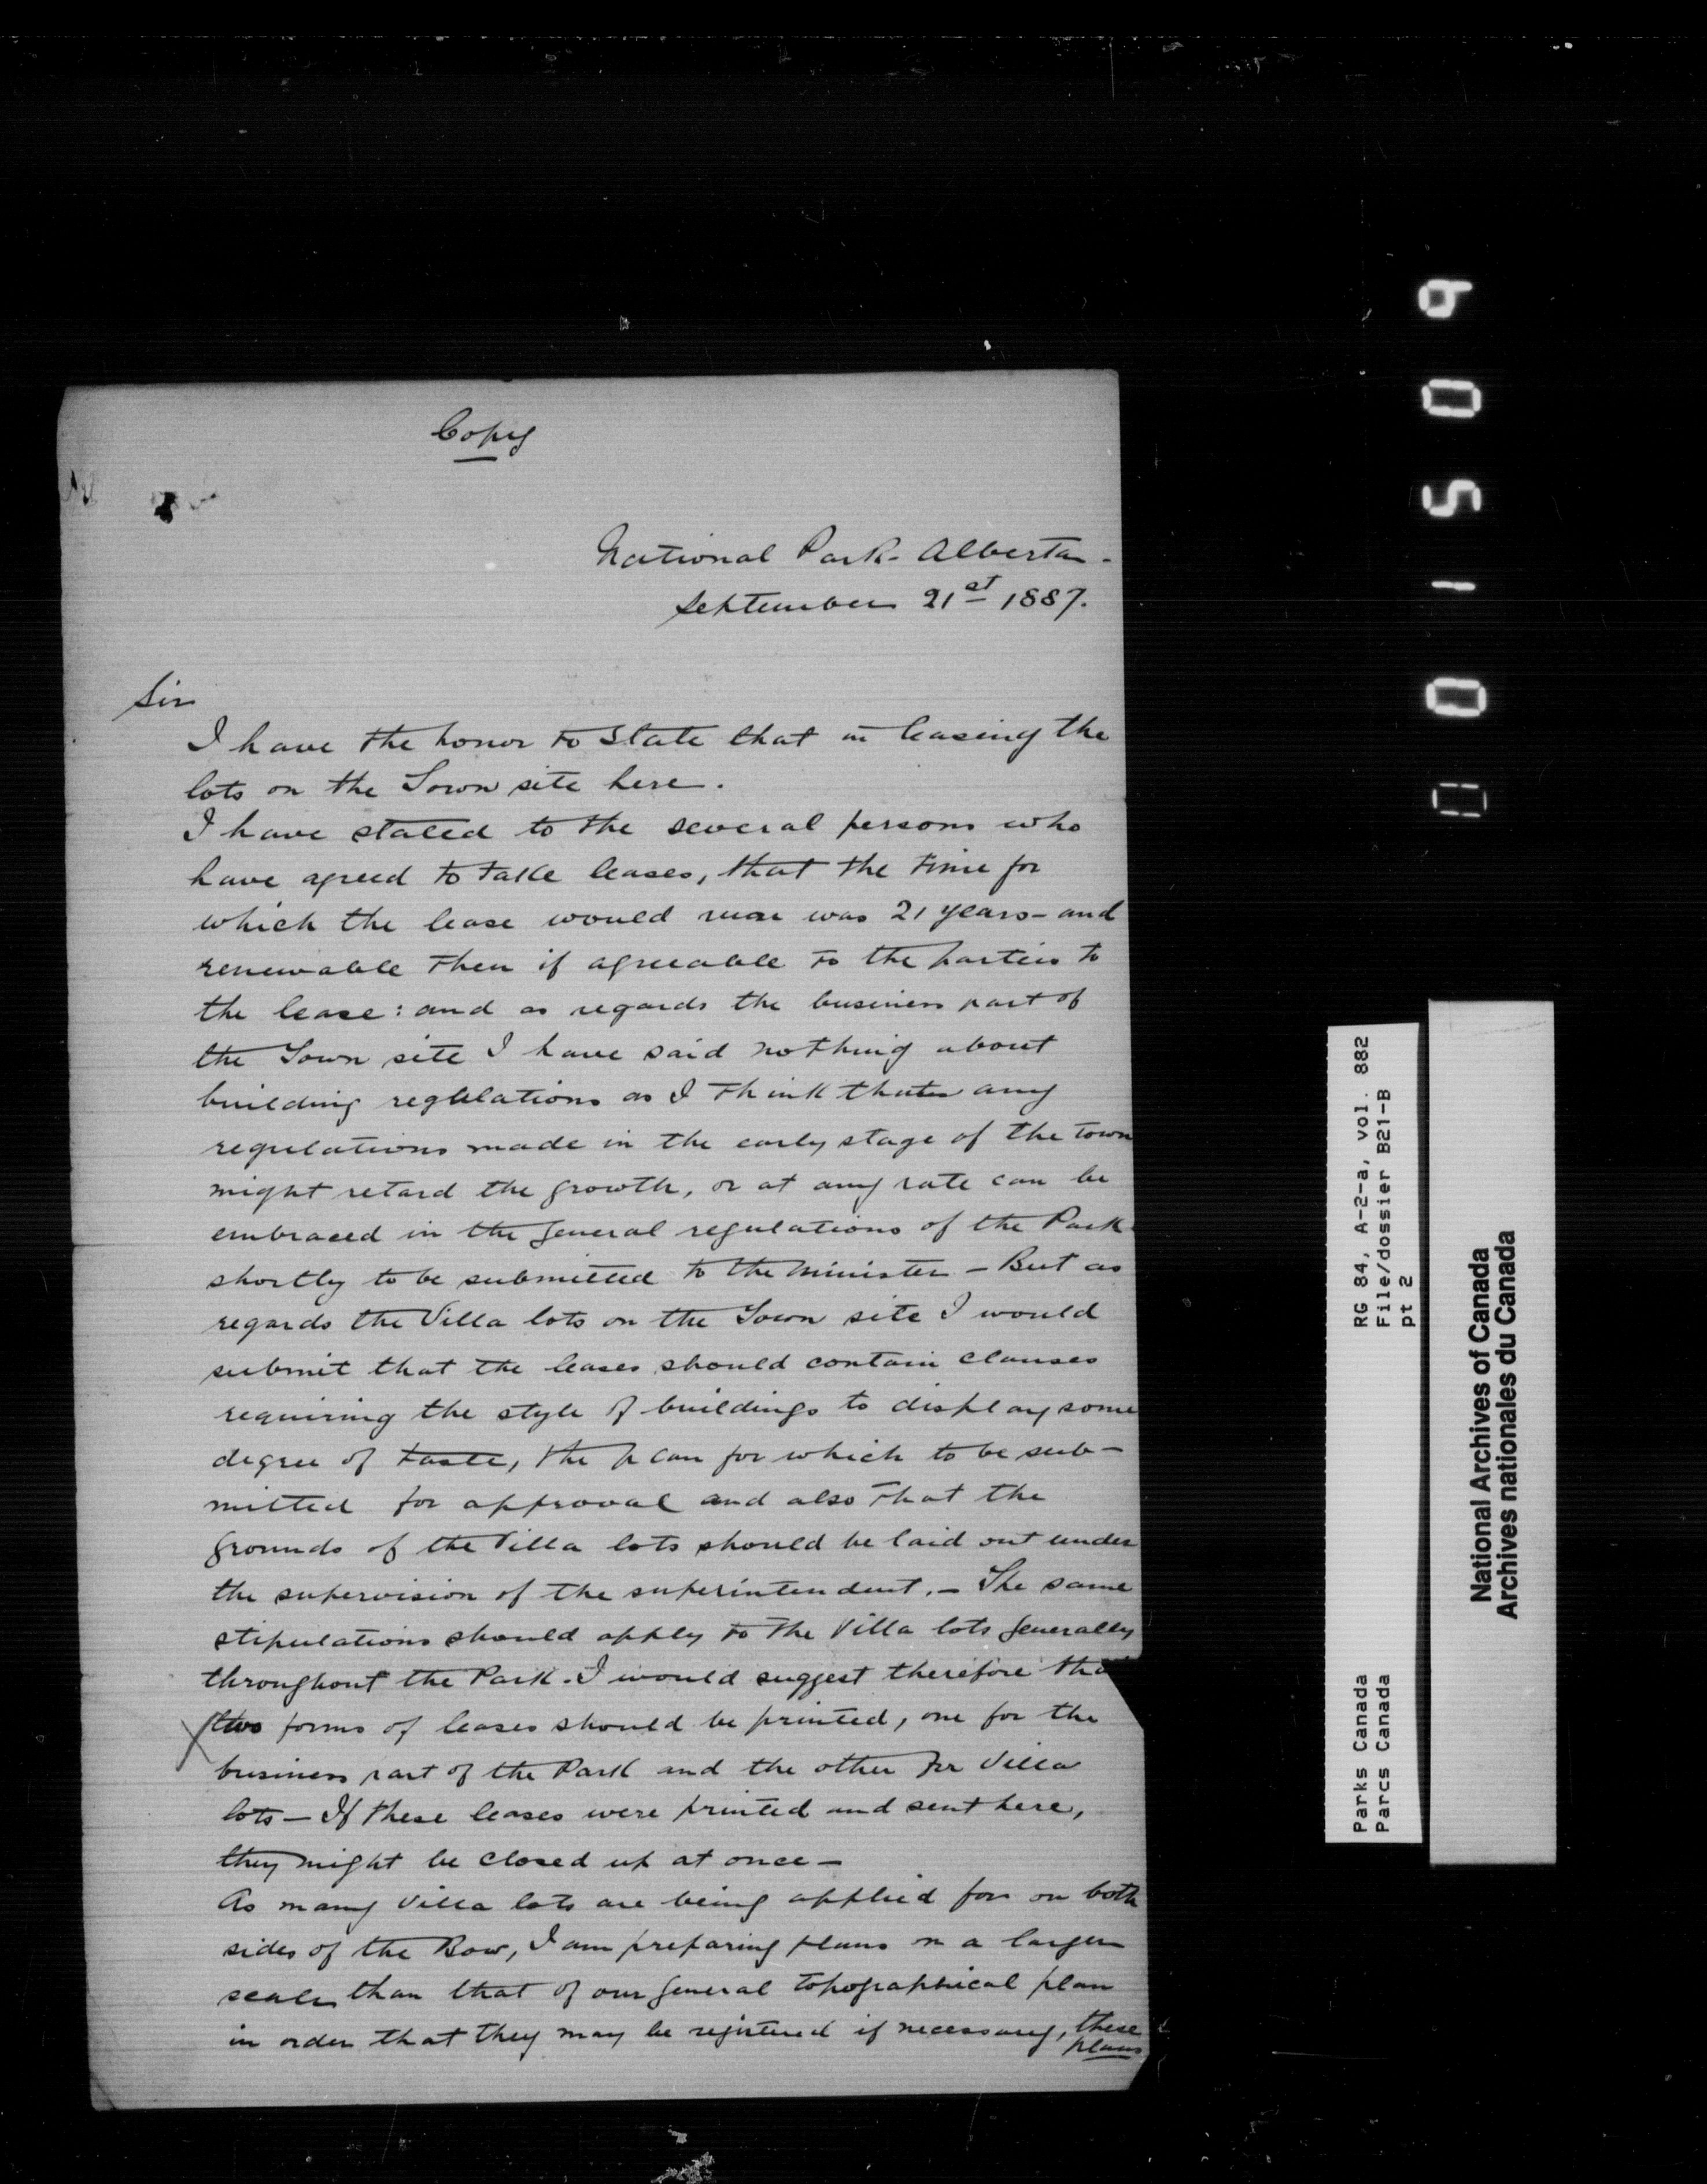 Copy
National Park - Alberta -
September 21st 1887.
Sir
I have the honor to state that in leasing the
lots on the Town site here.
I have stated to the several persons who
have agreed to take leases, that the time for
which the lease would run was 21 years - and
renewable then if agreeable to the parties to
the lease: and as regards the business part of
the Town site I have said nothing about
building regulations as I think that any
regulations made in the early stage of the town
might retard the growth, or at any rate can be
embraced in the general regulations of the Park
shortly to be submitted to the Minister - But as
regards the Villa lots on the Town site I would
submit that the leases should contain clauses
requiring the style of buildings to display some
degree of taste, the plan for which to be sub-
mitted for approval and also that the
grounds of the Villa lots should be laid out under
the supervision of the superintendent. - The same
stipulations should apply to the Villa lots generally
throughout the Park. I would suggest therefore that
two forms of leases should be printed, one for the
business part of the Park and the other for Villa
lots - If these leases were printed and sent here,
they might be closed up at once -
As many Villa lots are being applied for on both
sides of the Bow, I am preparing plans on a larger
scale than that of our general topographical plan
in order that they may be registered if necessary, these
plans
001509
Parks Canada RG 84, A-2-a, vol. 882
Parcs Canada File/dossier B21-B
pt 2
National Archives of Canada
Archives nationales du Canada